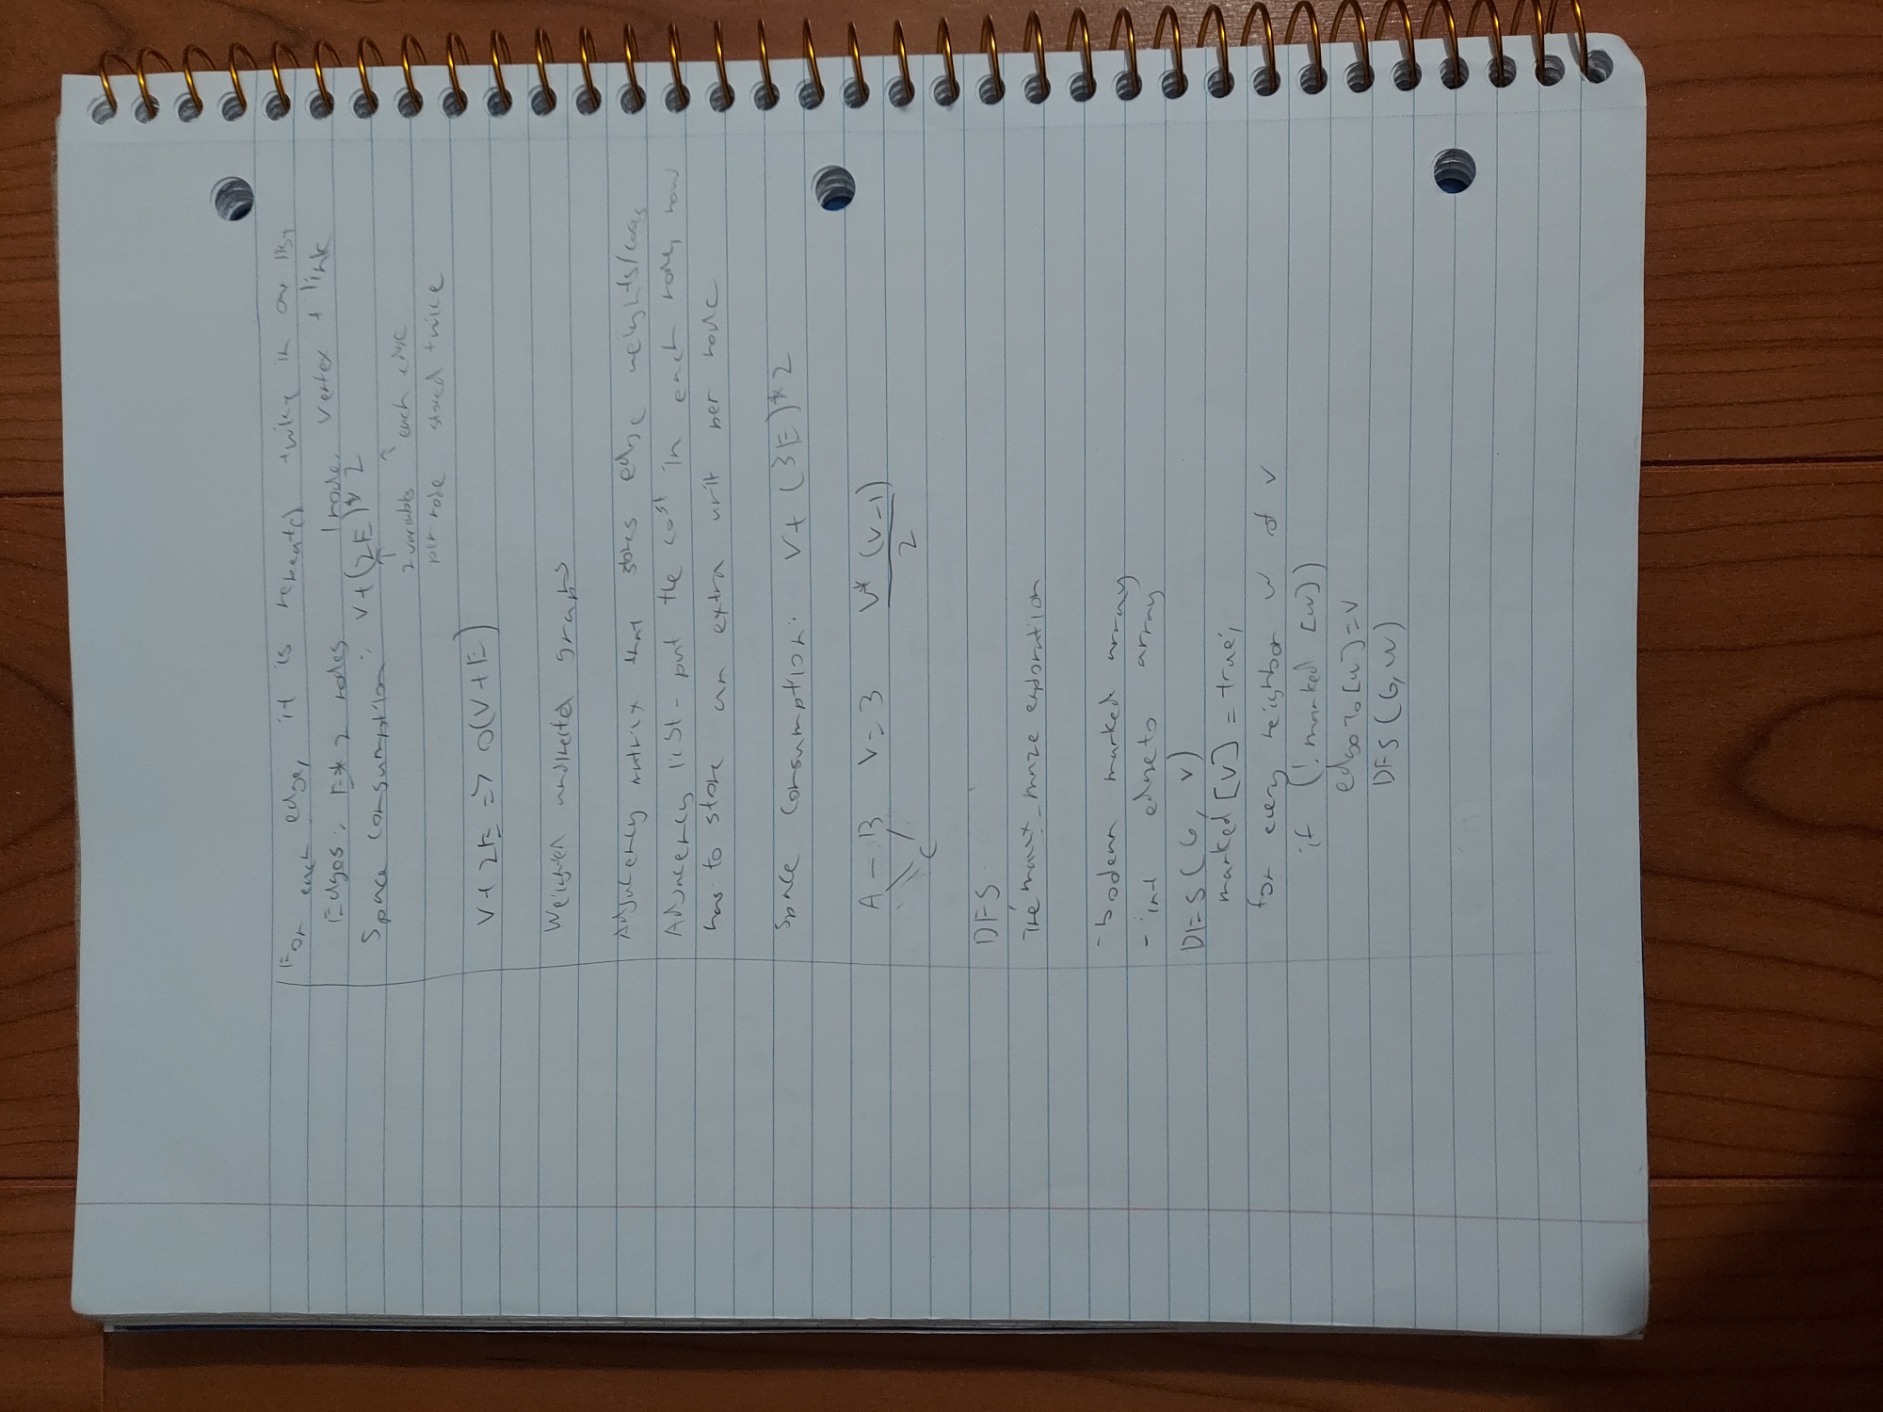 For each edge, it is repeated twice in adj list
Edges: E * 2 nodes 1 node, vertex + link
Space consumption: V + (2E) * 2
2 variables each edge
per node stored twice
V + 2E => O(V+E)
Weighted undirected graphs
Adjacency matrix that stores edge weights/costs
Adjacency list - put the cost in each node, now
has to store an extra unit per node
Space consumption: V + (3E) * 2
A - B V = 3 V * (V-1)
C 2
DFS
Tremaux maze exploration
- boolean marked array
- int edgeto array
DFS (G, v)
marked [v] = true;
for every neighbor w of v
if (!marked [w])
edgeTo[w] = v
DFS (G, w)